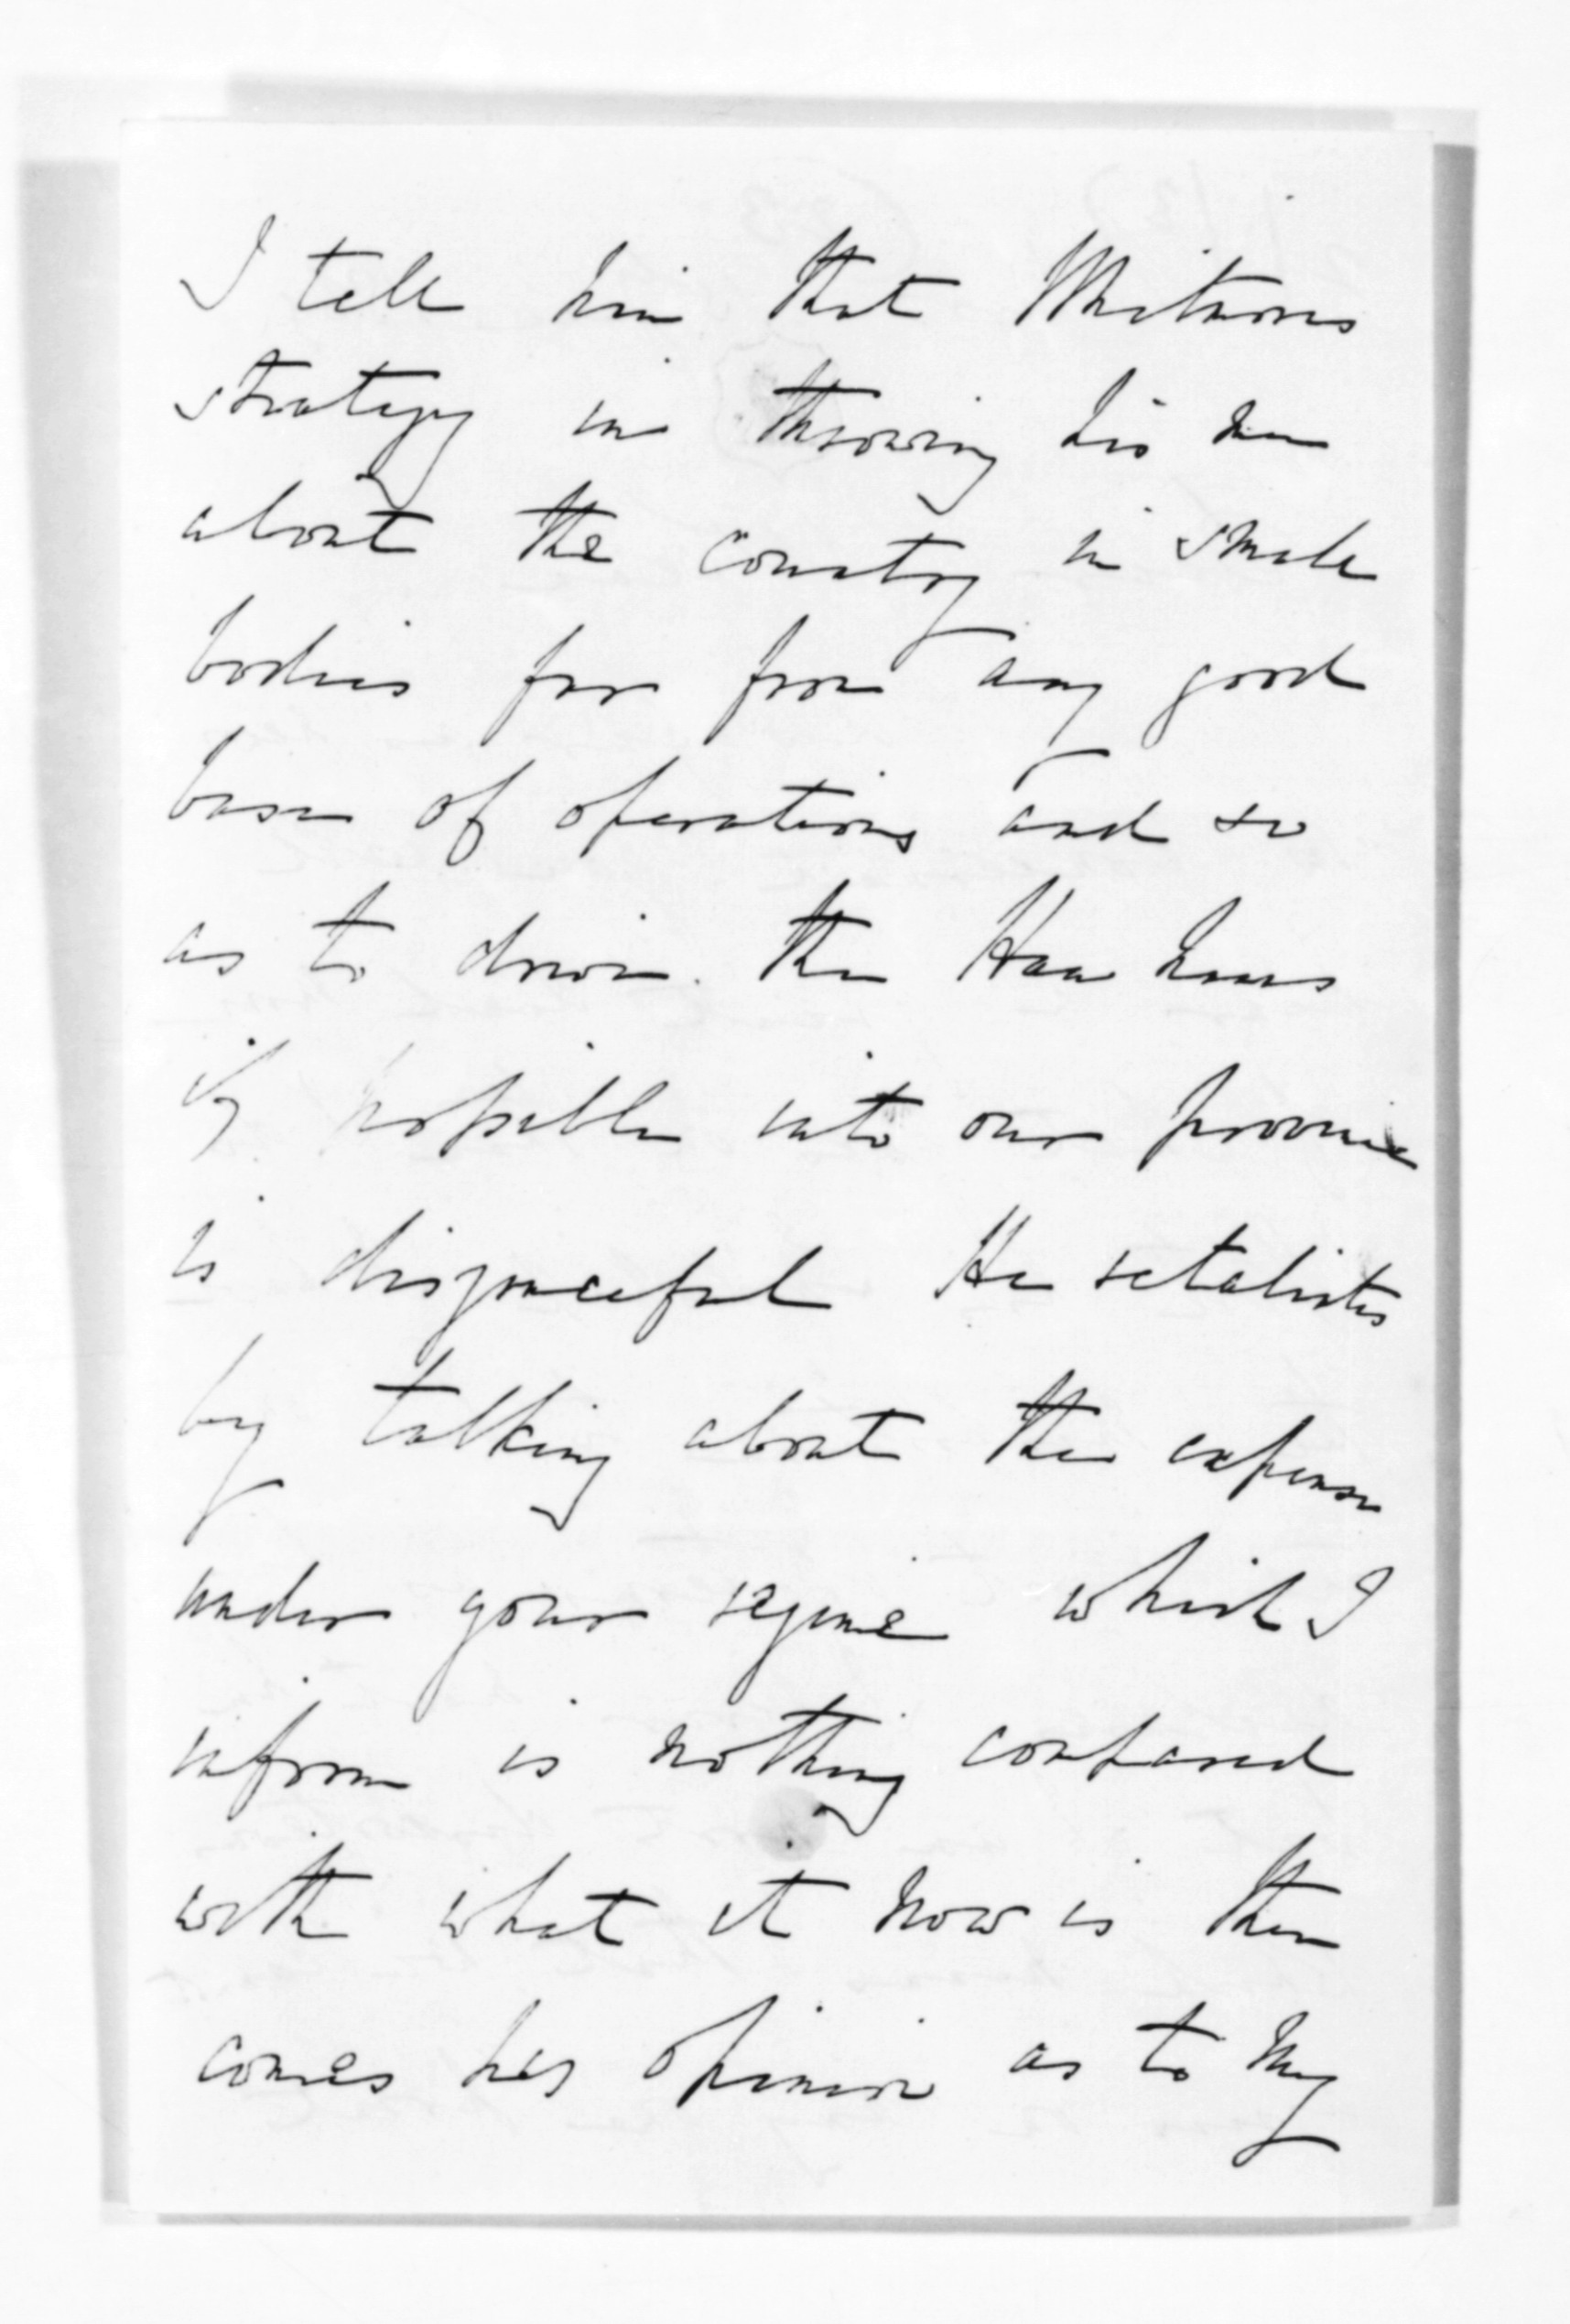 I tell him that Whitmores
strategy in throwing his men
about the country in small
bodies far from any good
base of operations and so
as to drive the Hau haus
if possible into our province
is disgraceful He retaliates
by talking about the expense
under your regime which I
inform is nothing compared
with what it now is then
comes his opinion as to my